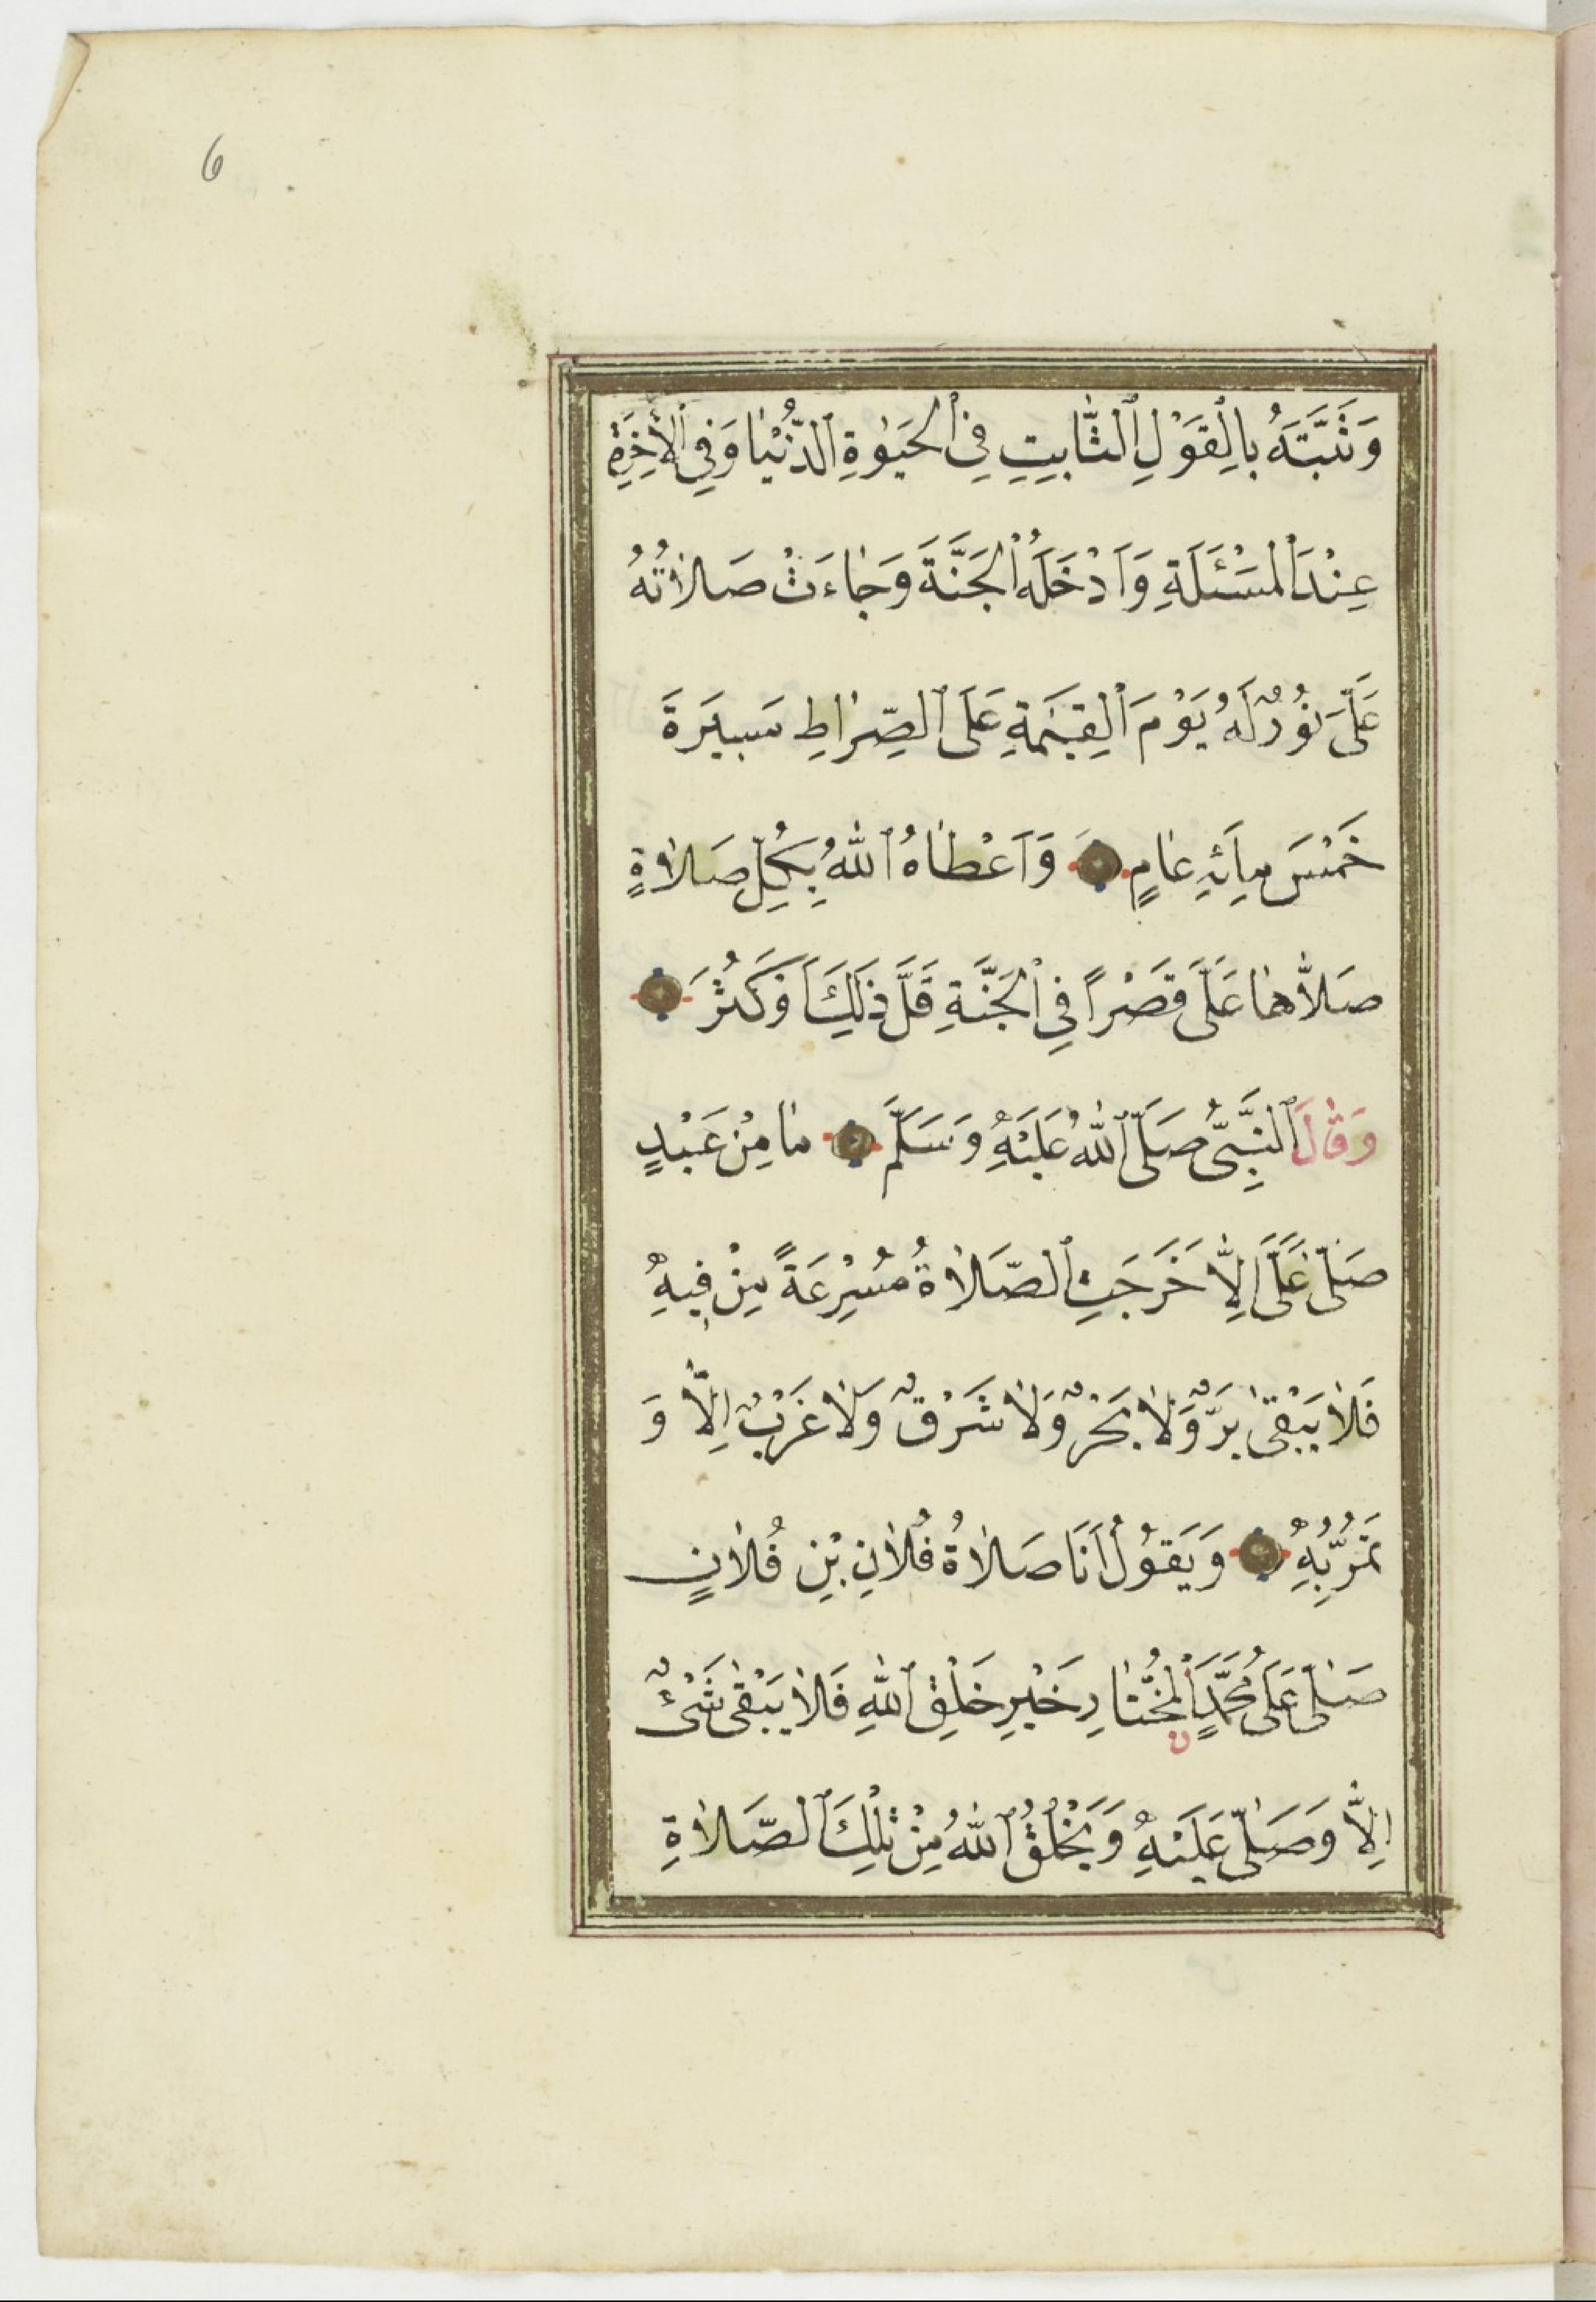 6
وَثَبَّتَهُ بِالْقَوْلِ الثَّابِتِ فِي الْحَيٰوةِ الدُّنْيَا وَفِي الْأٰخِرَةِ
عِنْدَ الْمَسْئَلَةِ وَاَدْخَلَهُ الْجَنَّةَ وَجَاءَتْ صَلَاتُهُ
عَلَيَّ نُورٌ لَهُ يَوْمَ الْقِيٰمَةِ عَلَى الصِّرَاطِ مَسِيرَةَ
خَمْسَ مِائَةِ عَامٍ وَاَعْطَاهُ اللّٰهُ بِكُلِّ صَلَاةٍ
صَلَّاهَا عَلَيَّ قَصْرًا فِي الْجَنَّةِ قَلَّ ذٰلِكَ اَوْ كَثُرَ
وَقَالَ النَّبِيُّ صَلَّى اللّٰهُ عَلَيْهِ وَسَلَّمَ مَا مِنْ عَبْدٍ
صَلَّى عَلَيَّ اِلَّا خَرَجَتِ الصَّلَاةُ مُسْرِعَةً مِنْ فِيهِ
فَلَا يَبْقٰى بَرٌّ وَلَا بَحْرٌ وَلَا شَرْقٌ وَلَا غَرْبٌ اِلَّا وَ
تَمُرُّ بِهِ وَيَقُولُ اَنَا صَلَاةُ فُلَانِ بْنِ فُلَانٍ
صَلَّى عَلَى مُحَمَّدٍ الْمُخْتَارِ خَيْرِ خَلْقِ اللّٰهِ فَلَا يَبْقٰى شَيْءٌ
ن
اِلَّا وَصَلَّى عَلَيْهِ وَيَخْلُقُ اللّٰهُ مِنْ تِلْكَ الصَّلَاةِ